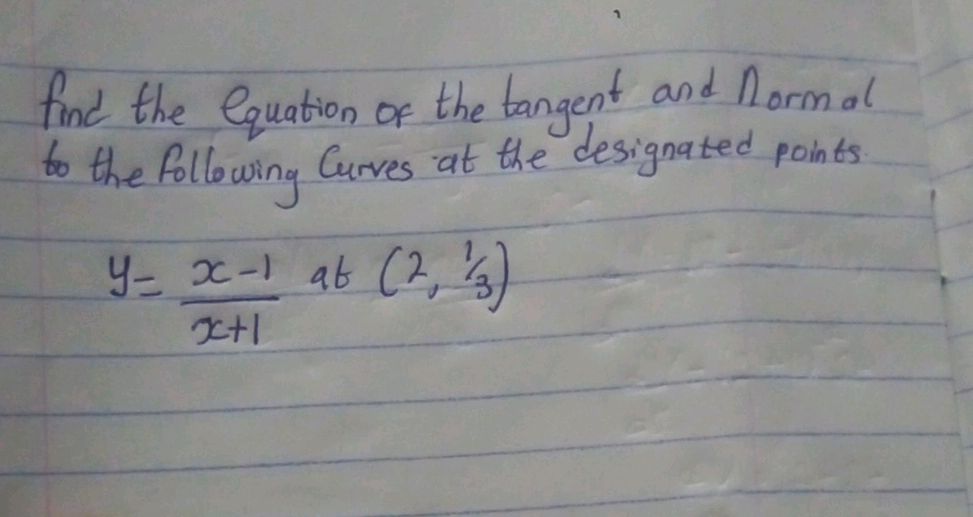 find the Equation of the tangent and Normal
to the following Curves at the designated points.
y = x-1/x+1 at (2, 1/3)